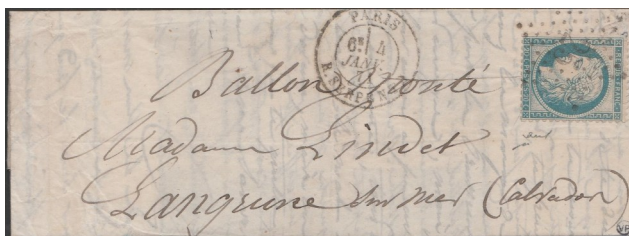 PARIS
6E 4
JANV.
71
R. SERPENTE
Ballon monté
Madame Lindet
Langrune sur mer (Calvados)